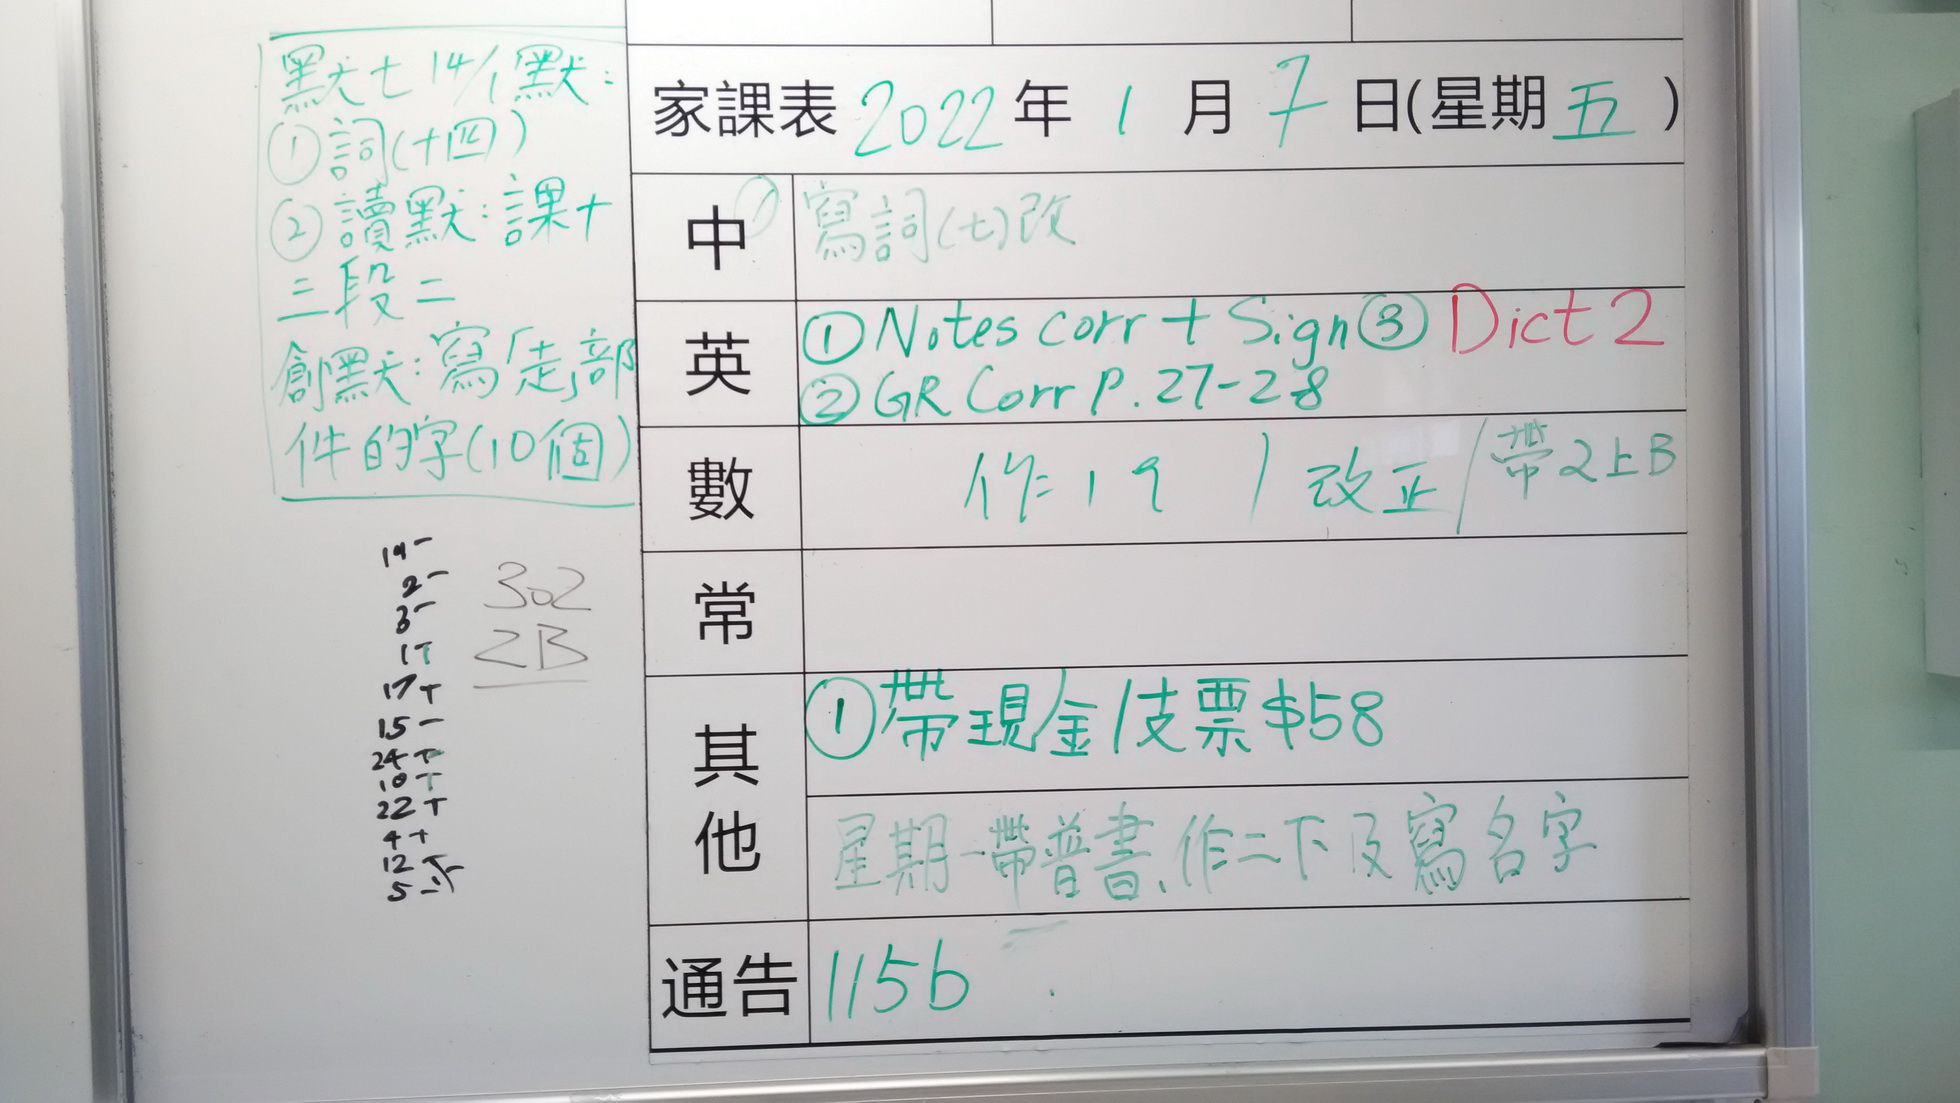 默七 14/1 默:
① 詞(十四)
② 讀默:課十
三段二
創默:寫「走」部
件的字(10個)
19 -
2 -
3 -
1 T
17 T
15 -
24 T
10 T
22 T
4 +
12 T
5 -
302
2B
家課表 2022 年 1 月 7 日(星期 五 )
中 寫詞(七)改
英 ① Notes corr + Sign ③ Dict 2
② GR Corr P. 27-28
數 作:19 / 改正 / 帶2上B
常
其他 ① 帶現金/支票 $58
星期一帶普書、作二下及寫名字
通告 115b